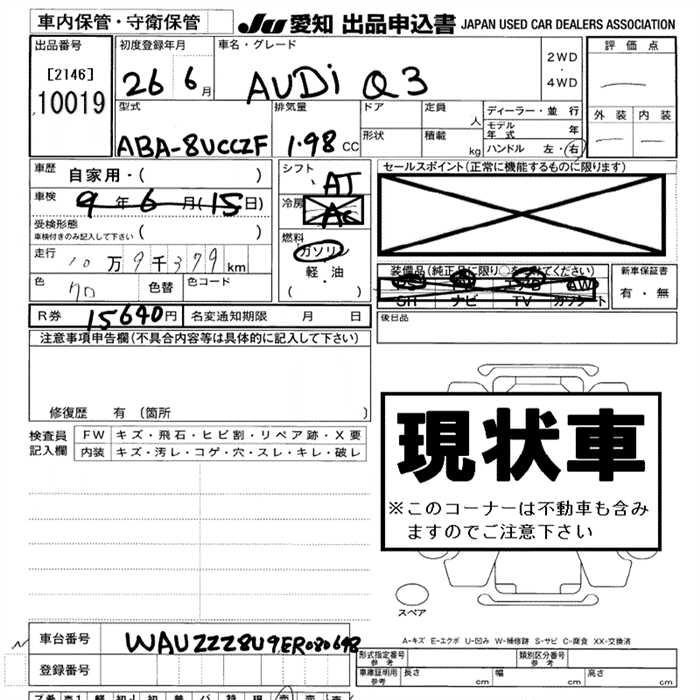 車内保管・守衛保管
JU 愛知 出品申込書 JAPAN USED CAR DEALERS ASSOCIATION
出品番号
[2146]
10019
初度登録年月
26 6月
車名・グレード
AUDi Q3
2WD
・
4WD
評価点
外装 内装
型式
ABA-8UCCZF
排気量
1.98 CC
ドア
形状
定員 人
積載 kg
ディーラー・並行
モデル年式 年
ハンドル 左・右
車歴 自家用・( )
車検 9年6月(15日)
受検形態
車検付きのみ記入して下さい ( )
走行 10万9千379km
色 色替 色コード
シフト
AT
冷房
AC
燃料
ガソリン
軽・油
( ・ )
セールスポイント(正常に機能するものに限ります)
装備品(純正品に限り○をつけてください)
SR ナビ TV カワシート
AW
新車保証書
有・無
R券 15640円 名変通知期限 月 日
後日品
注意事項申告欄(不具合内容等は具体的に記入して下さい)
修復歴 有(箇所 )
検査員記入欄
FW キズ・飛石・ヒビ割・リペア跡・X要
内装 キズ・汚レ・コゲ・穴・スレ・キレ・破レ
現状車
※このコーナーは不動車も含み
ますのでご注意下さい
スペア
A-キズ E-エクボ U-凹み W-補修跡 S-サビ C-腐食 XX-交換済
車台番号 WAUZZZ8U9ER080648
登録番号
形式指定番号 参考
類別区分番号 参考
車庫証明用 参考 長さ cm 幅 cm 高さ cm